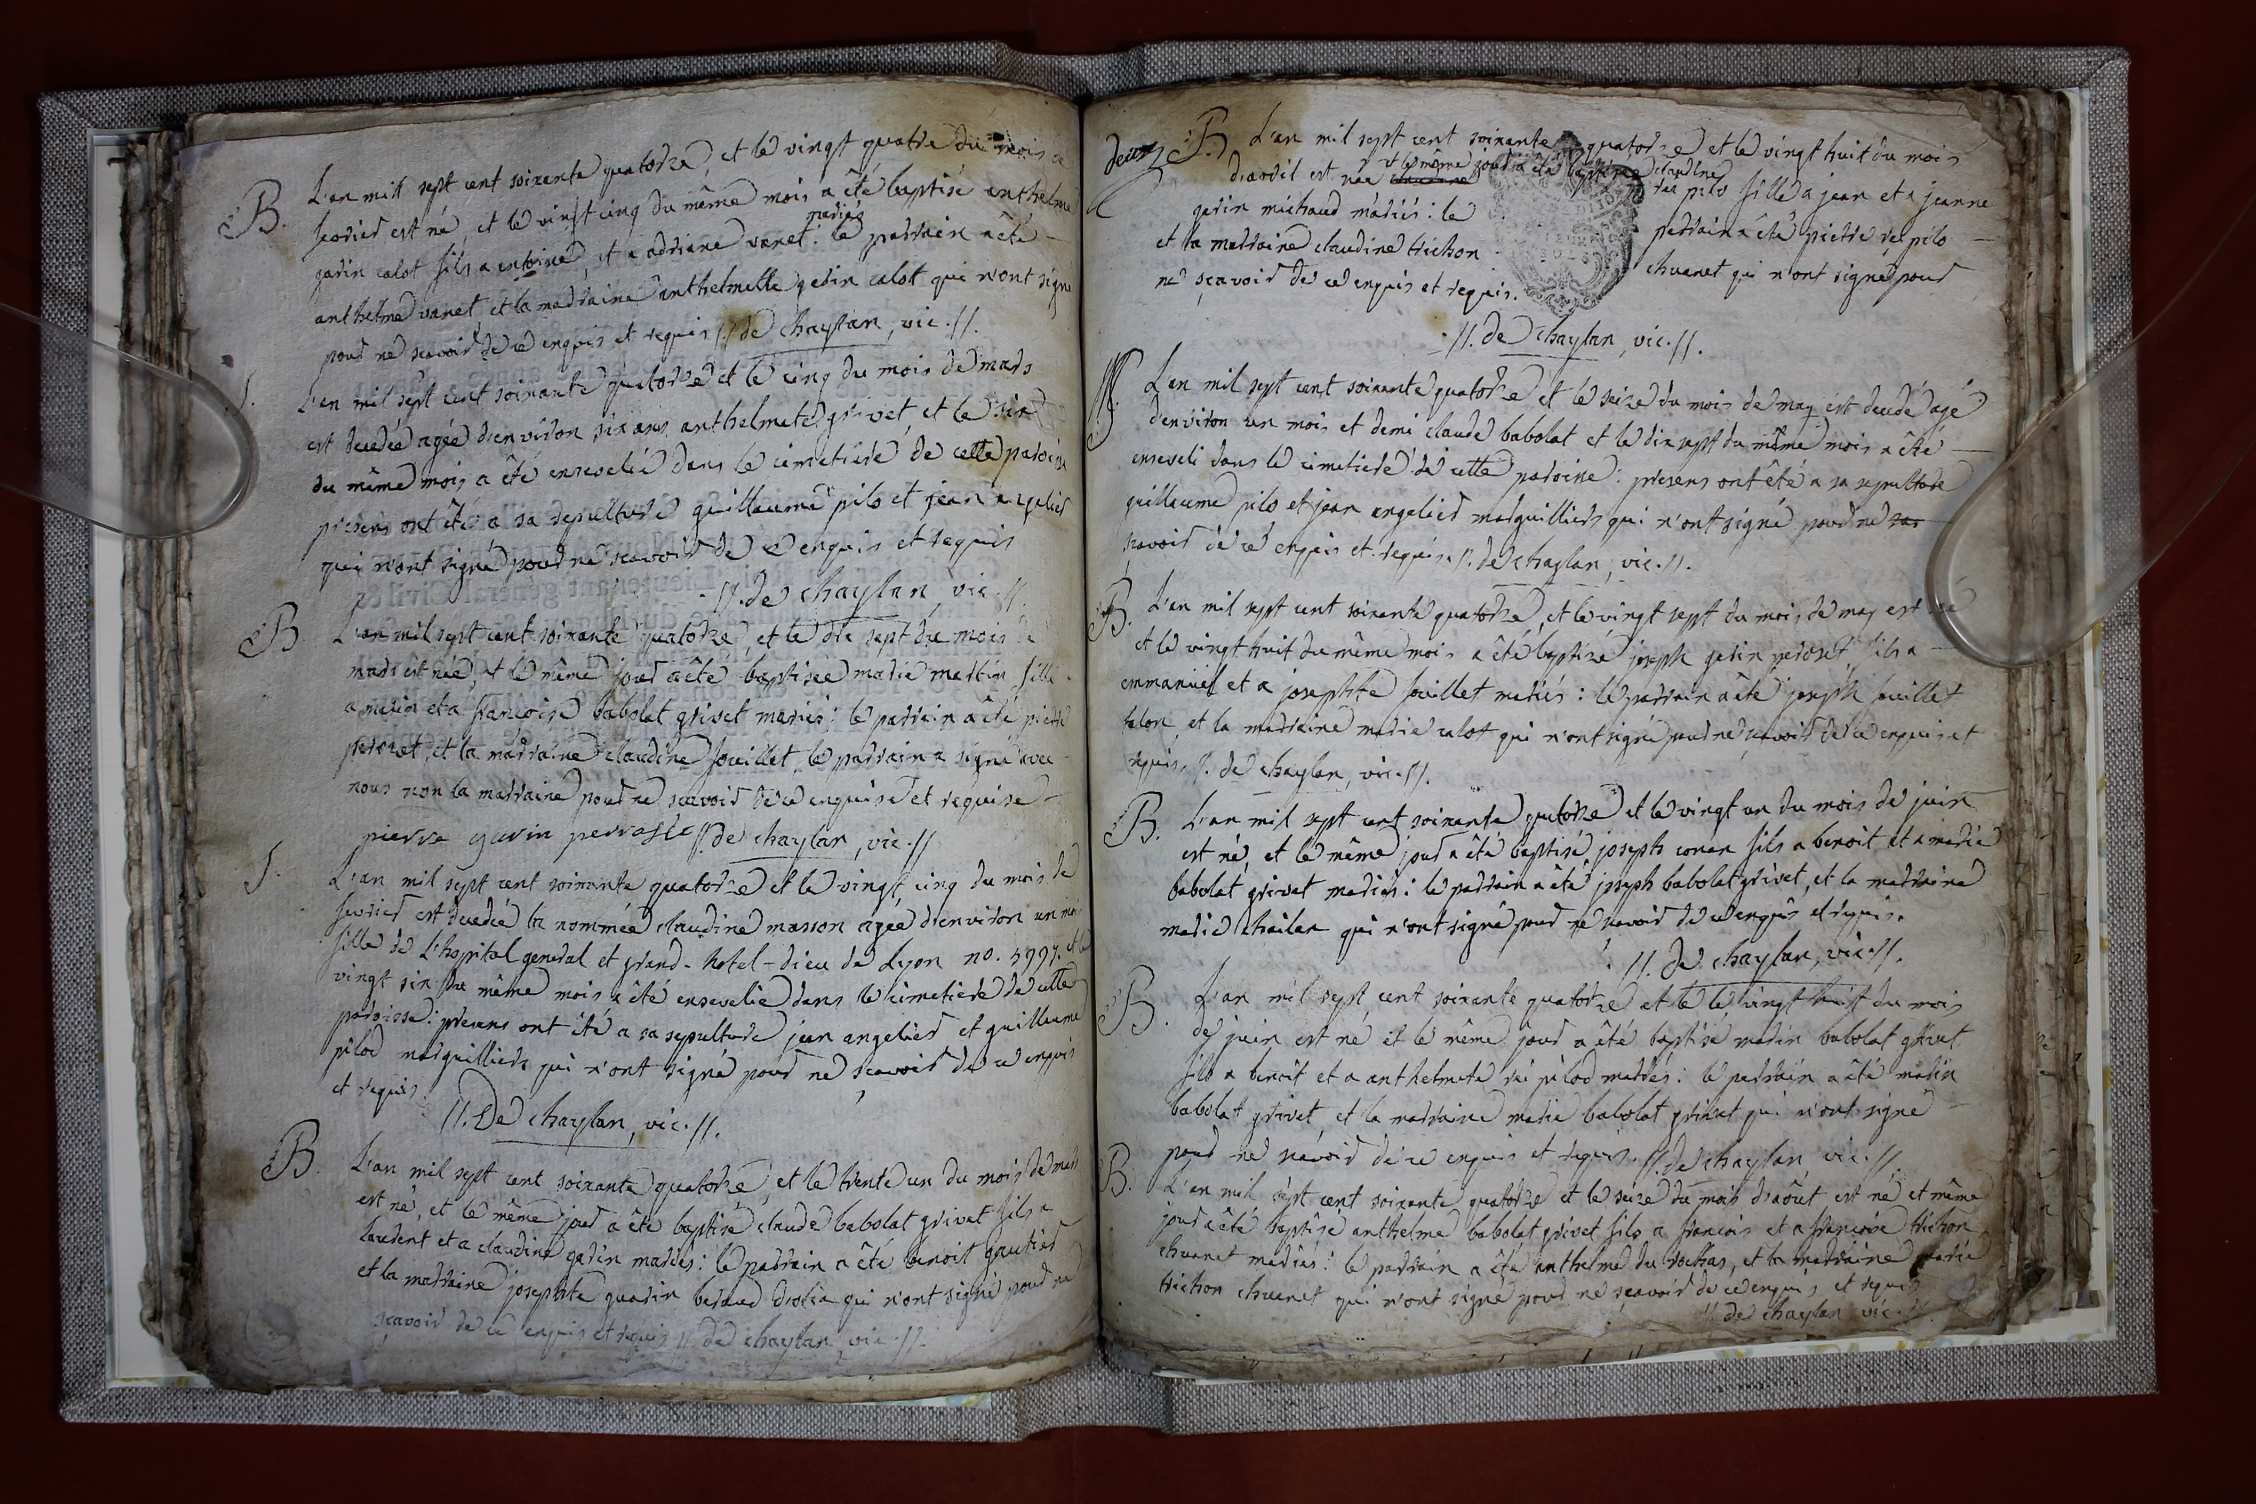 B. L'an mil sept cent soixante quatorze, et le vingt quatre du mois de
fevrier est né, et le vingt cinq du même mois a été baptisé anthelme
garin calot fils a antoine, et a adriane vanet mariés : le parrain a été
anthelme vanet et la marraine anthelmette gerin calot qui n'ont signé
pour ne scavoir de ce enquis et requis //. de chaylan, vic. //.
S. L'an mil sept cent soixante quatorze et le cinq du mois de mars
est decedée agée d'environ six ans anthelmete grivet, et le six
du même mois a été ensevelie dans le cimetiere de cette paroisse
presens ont été a sa sepulture guillaume pilo et jean angelier
qui n'ont signé pour ne scavoir de ce enquis et requis
//. de chaylan, vic. //.
B. L'an mil sept cent soixante quatorze, et le dix sept du mois de
mars est née, et le même jour a été baptisée marie martin fille
a marin et a francoise babolat grivet mariés : le parrain a été pierre
perozet, et la marraine claudine fouillet, le parrain a signé avec
nous non la marraine pour ne scavoir de ce enquise et requise
pierre garin perrosse //. de chaylan, vic. //
S. L'an mil sept cent soixante quatorze et le vingt cinq du mois de
fevrier est decedée la nommée claudine masson agée d'environ un mois
fille de L'hopital general et grand-hotel-dieu de Lyon no. 5997. et le
vingt six du même mois a été ensevelie dans le cimetiere de cette
paroisse : presens ont été a sa sepulture jean angelier et guillaume
pilod marguilliers qui n'ont signé pour ne scavoir de ce enquis
et requis.
//. De chaylan, vic. //.
B. L'an mil sept cent soixante quatorze, et le trente un du mois de mars
est né, et le même jour a été baptisé claude babolat grivet fils a
laurent et a claudine garin mariés : le parrain a été benoit gautier
et la marraine josephte guarin beraud drolia qui n'ont signé pour ne
scavoir de ce enquis et requis //. de chaylan, vic. //.
deux B. L'an mil sept cent soixante quatorze et le vingt huit du mois
d'avril est née et le même jour a été baptisée claudine
rei pilo fille a jean et a jeanne
garin michaud mariés : le parrain a été pierre rei pilo
et la marraine claudine trichon chuanet qui n'ont signé pour
ne sçavoir de ce enquis et requis.
//. de chaylan, vic. //.
M. L'an mil sept cent soixante quatorze et le seize du mois de may est decedé agé
d'environ un mois et demi claude babolat et le dix sept du même mois a été
enseveli dans le cimetiere de cette paroisse : presens ont été a sa sepulture
guillaume pilo et jean angelier marguilliers qui n'ont signé pour ne
scavoir de ce enquis et requis. //. de chaylan, vic. //.
B. L'an mil sept cent soixante quatorze, et le vingt sept du mois de may est né
et le vingt huit du même mois a été baptisé joseph garin perozet fils a
emmanuel et a josephte fouillet mariés : le parrain a été joseph fouillet
talon, et la marraine marie calot qui n'ont signé pour ne scavoir de ce enquis et
requis. //. de chaylan, vic. //.
B. L'an mil sept cent soixante quatorze et le vingt un du mois de juin
est né, et le même jour a été baptisé joseph conan fils a benoit et a marie
babolat grivet mariés : le parrain a été joseph babolat grivet, et la marraine
marie chailan qui n'ont signé pour ne scavoir de ce enquis et requis.
//. de chaylan, vic. //.
B. L'an mil sept cent soixante quatorze et le le vingt huit du mois
de juin est né et le même jour a été baptisé marin babolat grivet
fils a benoit et a anthelmete rei pilod mariés : le parrain a été marin
babolat grivet, et la marraine marie babolat grivet qui n'ont signé
pour ne scavoir de ce enquis et requis. //. de chaylan, vic. //.
B. L'an mil sept cent soixante quatorze et le seize du mois d'août est né et même
jour a été baptisé anthelme babolat grivet fils a francois et a francoise trichon
chuanet mariés : le parrain a été anthelme du rochas, et la marraine marie
trichon chuanet qui n'ont signé pour ne scavoir de ce enquis et requis
//. de chaylan vic. //.